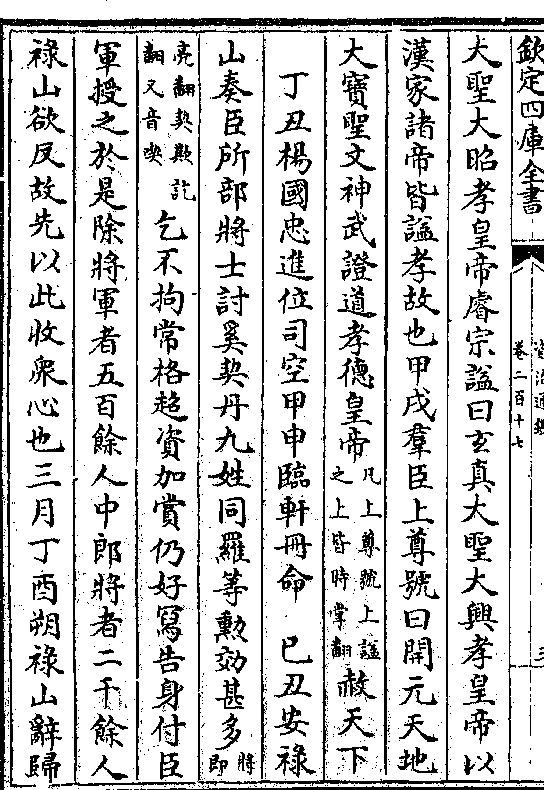 欽定四庫全書
資治通鑑
卷二百十七
三
大聖大昭孝皇帝睿宗諡曰玄真大聖大興孝皇帝以
漢家諸帝皆諡孝故也甲戌羣臣上尊號曰開元天地
大寶聖文神武證道孝德皇帝凡上尊號上諡之上皆時掌翻赦天下
丁丑楊國忠進位司空甲申臨軒冊命 己丑安祿
山奏臣所部將士討奚契丹九姓同羅等勲効甚多將即
亮翻契欺訖翻又音喫乞不拘常格超資加賞仍好寫告身付臣
軍授之於是除將軍者五百餘人中郎將者二千餘人
祿山欲反故先以此收衆心也三月丁酉朔祿山辭歸